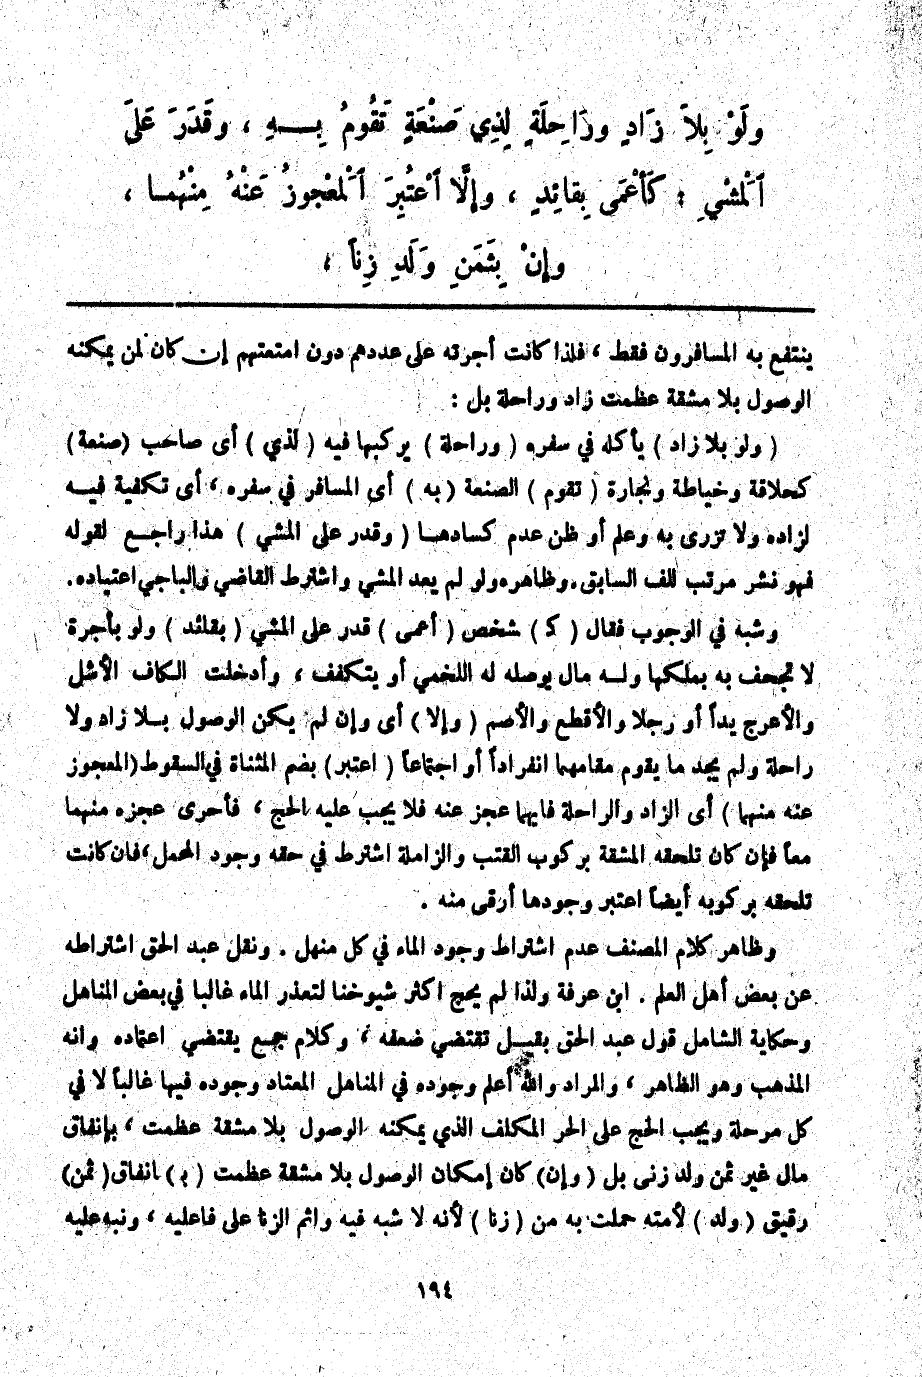 ولَوْ بِلاَ زَادٍ ورَاحِلَةٍ لِذِي صَنْعَةٍ تَقُومُ بِــهِ ، وقَدَرَ عَلَى
ٱلْمَشْيِ : كَأَعْمَى بِقائِدٍ ، وإلَّا ٱعْتُبِرَ ٱلْمَعْجوزُ عَنْهُ مِنْهُمـا ،
وإنْ بِثَمَنِ وَلَدِ زِناً ،
ينتفع به المسافرون فقط ، فلذا كانت أجرته على عددهم دون امتعتهم إن كان لمن يمكنه
الوصول بلا مشقة عظمت زاد وراحلة بل :
( ولو بلا زاد ) يأكله في سفره ( وراحلة ) يركبها فيه ( لذي ) أى صاحب (صنعة)
كحلاقة وخياطة ونجارة ( تقوم ) الصنعة ( به ) أى المسافر في سفره ، أى تكفية فيــه
لزاده ولا تزرى به وعلم أو ظن عدم كسادهـا ( وقدر على المشي ) هذا راجـع لقوله
فهو نشر مرتب للف السابق.وظاهره ولو لم يعد المشي واشترط القاضي والباجي اعتياده.
وشبه في الوجوب فقال ( كـ ) شخص ( أعمى ) قدر على المشي ( بقائد ) ولو بأجرة
لا تجحف به يملكها ولـه مال يوصله له اللخمي أو يتكفف ، وأدخلت الكاف الأشل
والأعرج يداً أو رجلا والأقطع والأصم ( وإلا ) أى وإن لم يكن الوصول بـلا زاد ولا
راحلة ولم يجد ما يقوم مقامهما انفراداً أو اجتماعاً ( اعتبر) بضم المثناة في السقوط (المعجوز
عنه منهما ) أى الزاد والراحلة فايهما عجز عنه فلا يجب عليه الحج ، فأحرى عجزه منهما
معاً فإن كان تلحقه المشقة بركوب القتب والزاملة اشترط في حقه وجود المحمل ،فان كانت
تلحقه بركوبه أيضاً اعتبر وجودها أرقى منه .
وظاهر كلام المصنف عدم اشتراط وجود الماء في كل منهل . ونقل عبد الحق اشتراطه
عن بعض أهل العلم . ابن عرفة ولذا لم يحج اكثر شيوخنا لتعذر الماء غالبا في بعض المناهل
وحكاية الشامل قول عبد الحق بقيــل تقتضي ضعفه ، وكلام جمع يقتضي اعتماده وانه
المذهب وهو الظاهر ، والمراد والله أعلم وجوده في المناهل المعتاد وجوده فيها غالباً لا في
كل مرحلة ويجب الحج على الحر المكلف الذي يمكنه الوصول بلا مشقة عظمت ، بإنفاق
مال غير ثمن ولد زنى بل ( وإن) كان إمكان الوصول بلا مشقة عظمت ( بـ ) انفاق( ثمن)
رقيق ( ولد ) لأمته حملت به من ( زنا ) لأنه لا شبه فيه واثم الزنا على فاعليه ، ونبه عليه
١٩٤